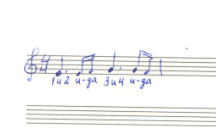 4
4
1 и 2 и-да 3 и 4 и-да